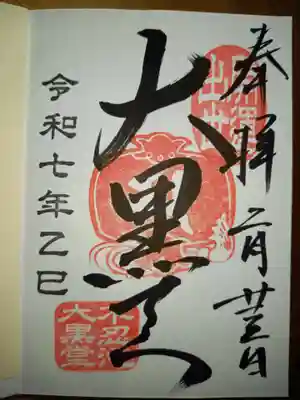 奉拝 二月
大黒天
令和七年乙巳
不忍池
大黒堂